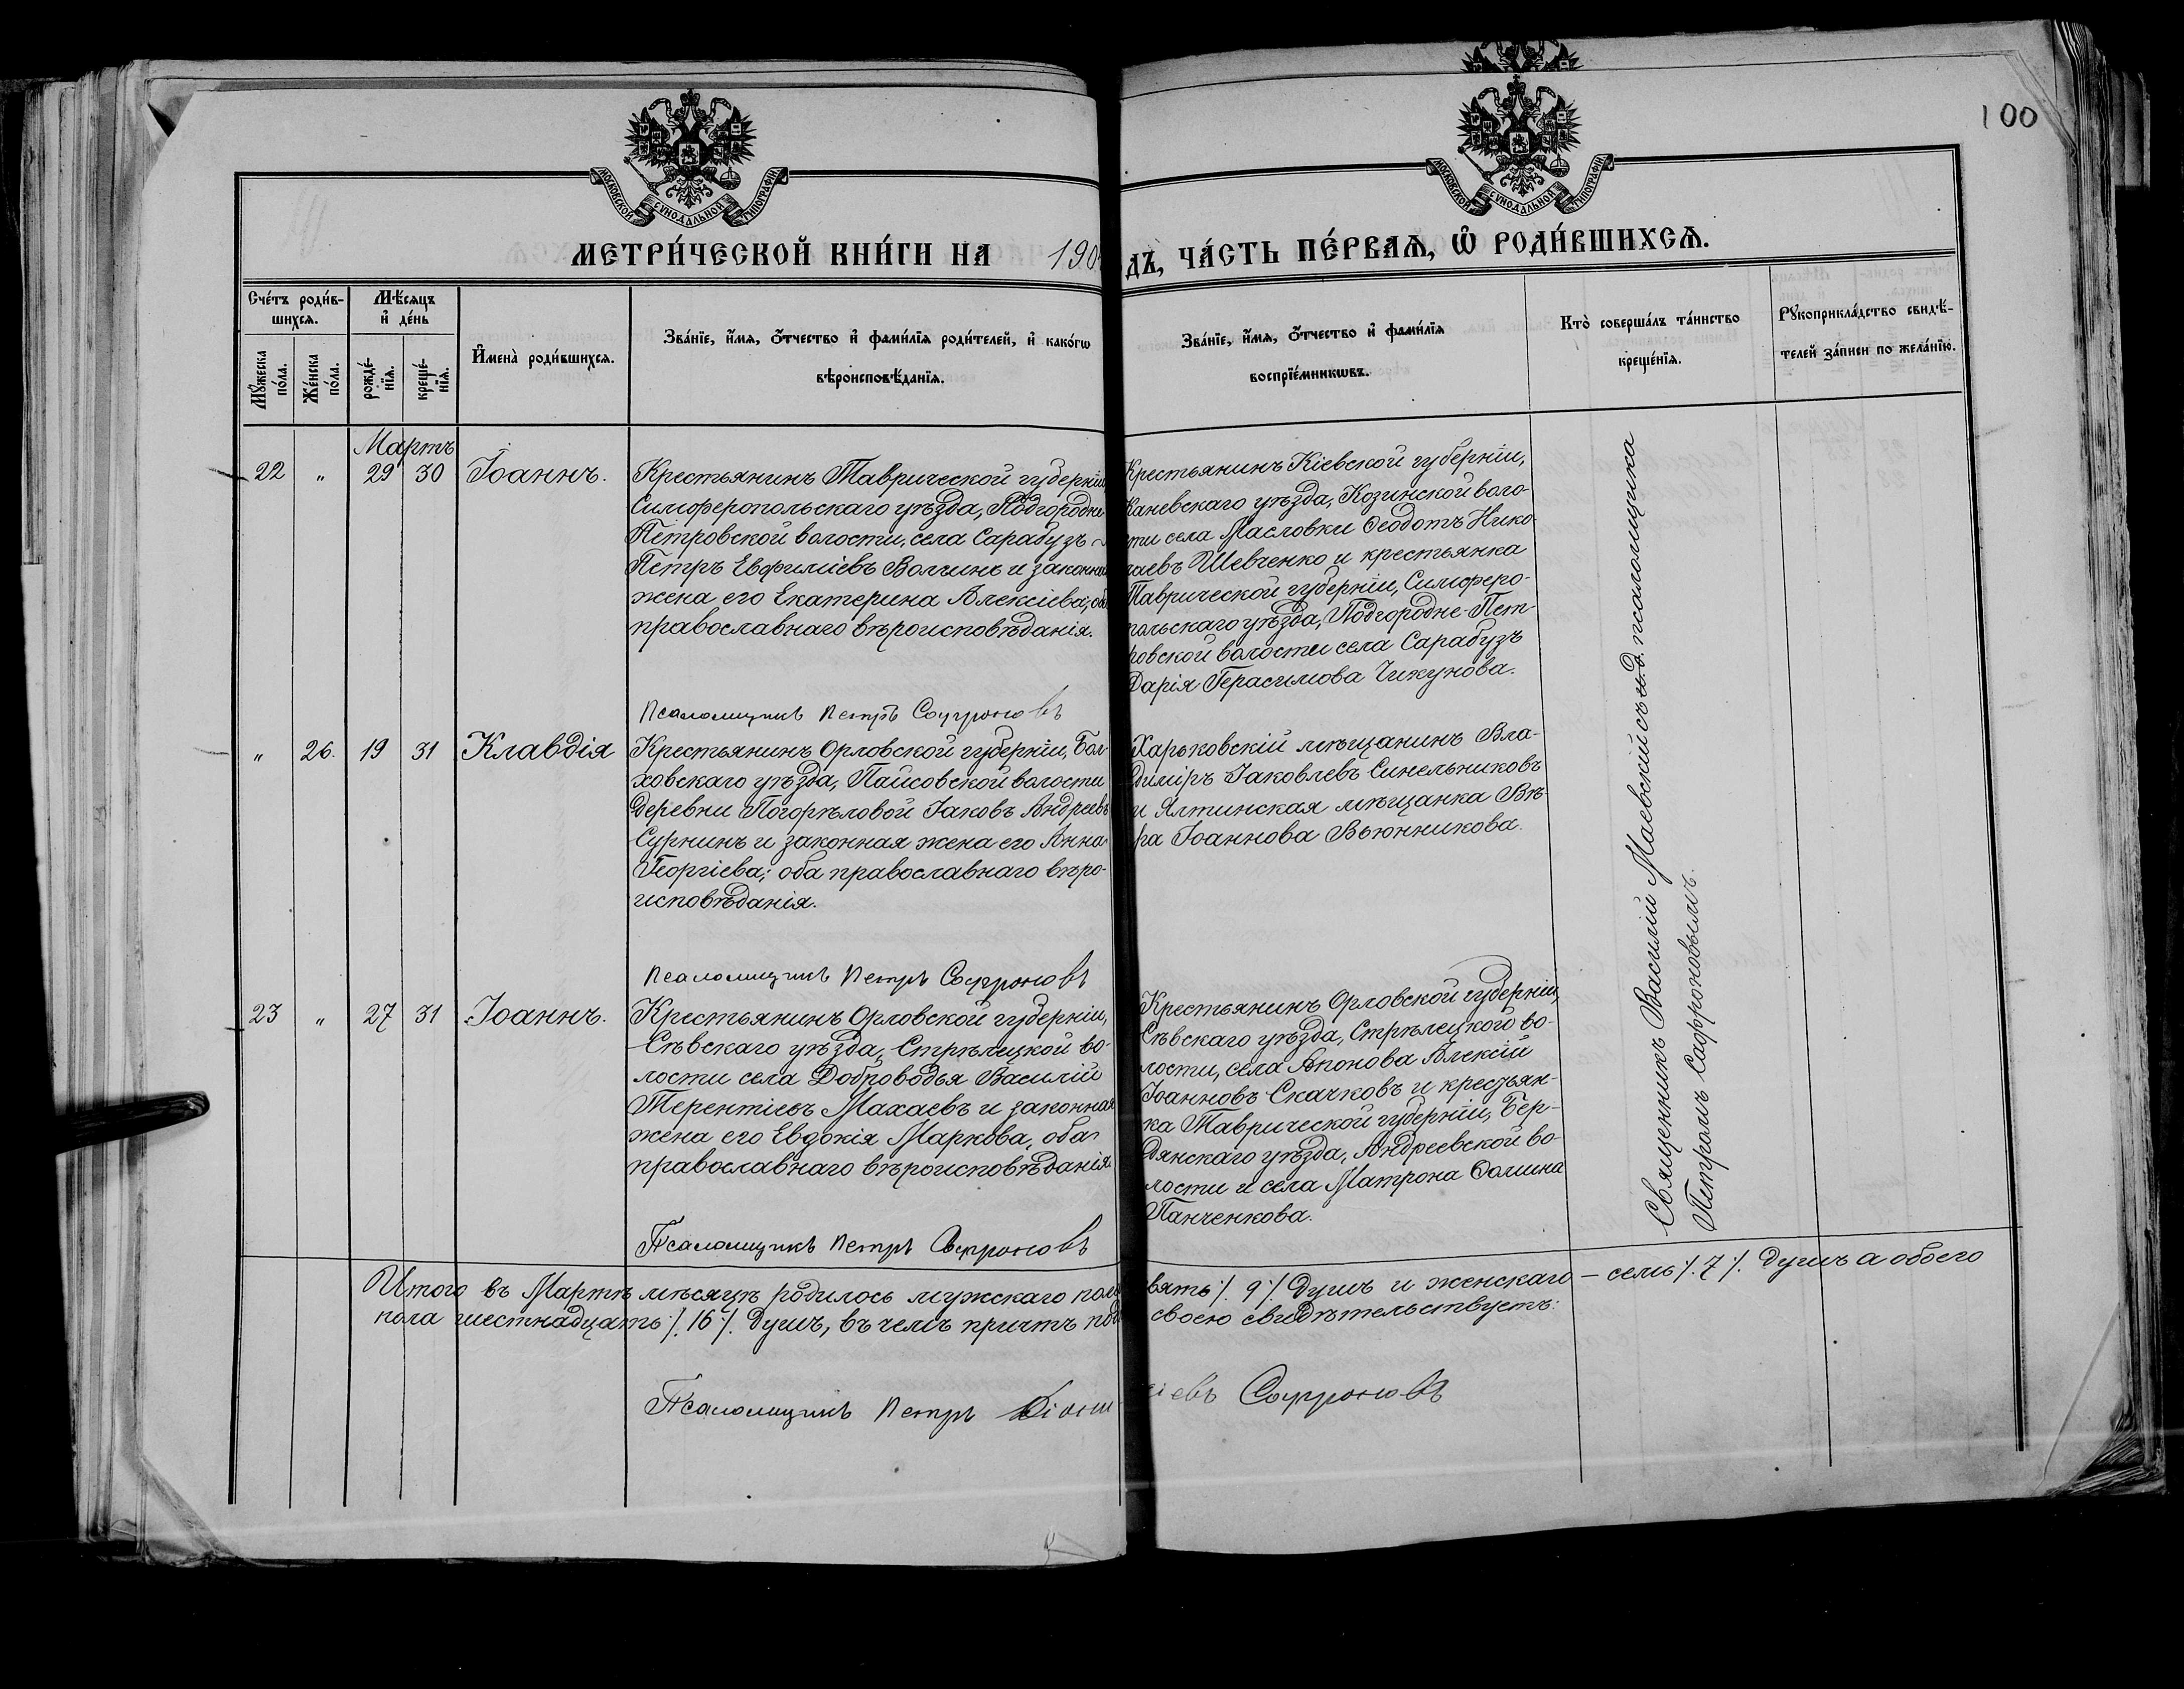 100
МОСКОВСКОЙ СѴНОДАЛЬНОЙ ТИПОГРАФІИ
МОСКОВСКОЙ СѴНОДАЛЬНОЙ ТИПОГРАФІИ
МЕТРИ́ЧЕСКОЙ КНИ́ГИ НА 190
дъ, ЧА́СТЬ ПЕ́РВАѦ, Ѽ РОДИ́ВШИХСѦ.
Сче́тъ роди́в-
шихсѧ.
Мѣ́сѧцъ
и҆ де́нь
Мꙋ́жеска
по́ла.
Же́нска
по́ла.
рожде́-
нїѧ.
креще́-
нїѧ.
И҆мена̀ роди́вшихсѧ.
Зва́нїе, и҆́мѧ, ѻ҆́тчество и҆ фами́лїѧ роди́телей, и҆ како́гѡ
вѣроисповѣ́данїѧ.
Зва́нїе, и҆́мѧ, ѻ҆́тчество и҆ фами́лїѧ
воспрїе́мникѡвъ.
Кто̀ соверша́лъ та́инство
креще́нїѧ.
Рꙋкоприкла́дство свидѣ́-
телей за́писи по жела́нїю.
Мартъ
22 " 29 30 Іоаннъ.
Крестьянинъ Таврической губерніи
Симферопольскаго уѣзда, Подгородне-
Петровской волости, села Сарабузъ
Петръ Евфиміевъ Волчинъ и законная
жена его Екатерина Алексіева, оба
православнаго вѣроисповѣданія.
Псаломщикъ Петръ Софроновъ
Крестьянинъ Кіевской губерніи,
Каневскаго уѣзда, Козинской воло-
сти села Масловки Ѳеодотъ Нико-
лаевъ Шевченко и крестьянка
Таврической губерніи, Симферо-
польскаго уѣзда, Подгородне-Пет-
ровской волости села Сарабузъ
Дарія Герасимова Чижунова.
" 26. 19 31 Клавдія
Крестьянинъ Орловской губерніи, Бол-
ховскаго уѣзда, Пайсовской волости
деревни Погорѣловой Іаковъ Андреевъ
Сурнинъ и законная жена его Анна
Георгіева; оба православнаго вѣро-
исповѣданія.
Псаломщикъ Петръ Софроновъ
Харьковскій мѣщанинъ Вла-
диміръ Іаковлевъ Синельниковъ
и Ялтинская мѣщанка Вѣ-
ра Іоаннова Вьюнникова.
23 " 27 31 Іоаннъ.
Крестьянинъ Орловской губерніи,
Сѣвскаго уѣзда, Стрѣлецкой во-
лости села Доброводья Василій
Терентіевъ Махаевъ и законная
жена его Евдокія Маркова, оба
православнаго вѣроисповѣданія
Псаломщикъ Петръ Софроновъ
Крестьянинъ Орловской губерніи,
Сѣвскаго уѣзда, Стрѣлецкой во-
лости, села Апонова Алексій
Іоанновъ Скачковъ и крестьян-
ка Таврической губерніи, Бер-
дянскаго уѣзда, Андреевской во-
лости и села Матрона Ѳомина
Панченкова.
Священникъ Василій Маевскій съ и.д. псаломщика
Петромъ Софроновымъ.
Итого въ Мартѣ мѣсяцѣ родилось мужскаго пола девять ⁒ 9 ⁒ душъ и женскаго – семь ⁒ 7 ⁒ душъ а обоего
пола шестнадцать ⁒ 16 ⁒ душъ, въ чемъ причтъ под своею свидѣтельствуетъ:
Псаломщикъ Петръ Діони сіевъ Софроновъ